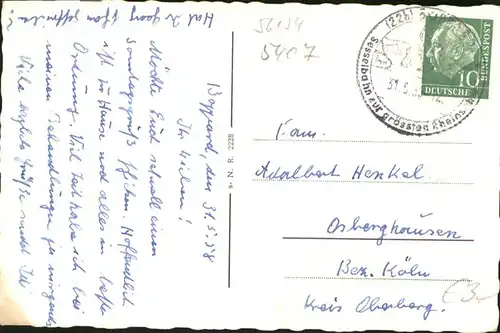 Boppard, den 31.5.58
Ihr Lieben!
Möchte Euch schnell einen
Sonntagsgruß schicken. Hoffentlich
ist zu Hause und alles in bester
Ordnung. Viel Zeit habe ich bei
meinen Behandlungen
Viele herzliche Grüße sendet
Hat Dr Georg schon
56154
5407
(22b)
Sesselbahn zur grössten Rheins
31.5.
DEUTSCHE
BUNDESPOST
10
Fam.
Adalbert Henkel
Osberghausen
Bez. Köln
Kreis Oberberg.
N. R. 2228
€3-